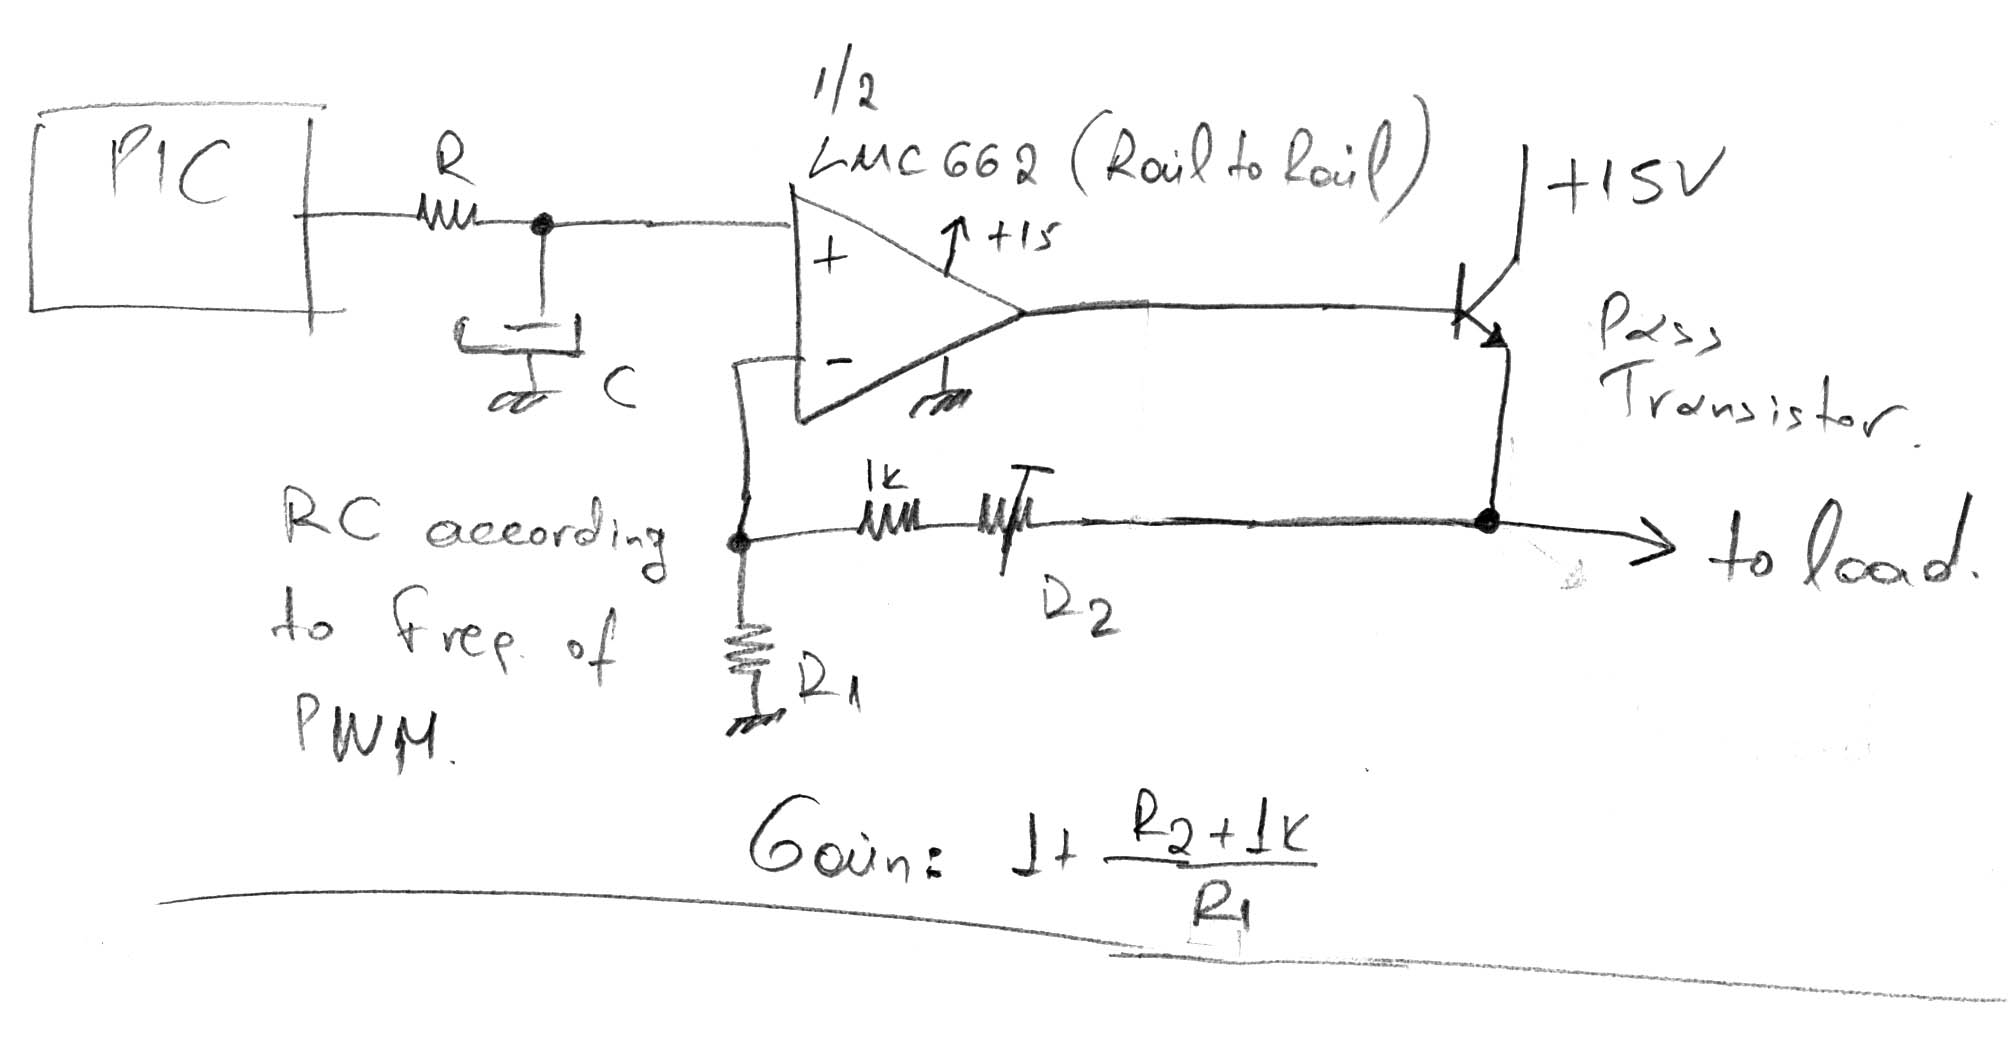 1/2
PIC
R
LMC662 (Rail to Rail)
+15V
+15
+
-
C
Pass
Transistor.
1K
R2
to load.
RC according
to freq. of
PWM.
R1
Gain: 1+ R2+1K
R1